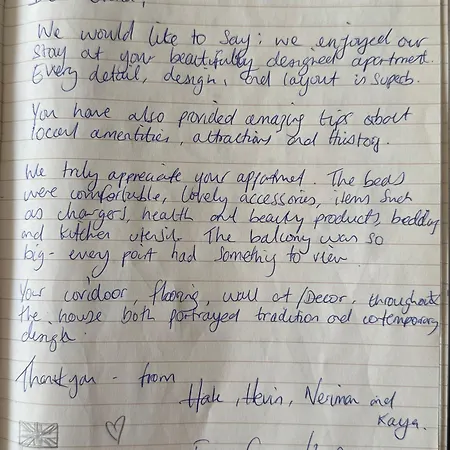 We would like to say; we enjoyed our
stay at your beautifully designed apartment.
Every detail, design, and layout is superb.
You have also provided amazing tips about
local amentities, attractions and history.
We truly appreciate your appartmet. The beds
were comfortable, lovely accessories, items such
as chargers, health and beauty products, bedding
and kitchen utensil. The balcony was so
big - every point had something to view
Your coridoor, flooring, wall art/Decor, throughout
the house both portrayed tradition and contemporary
design.
Thank you - from
Hale, Hevin, Neriman and
Kaya.